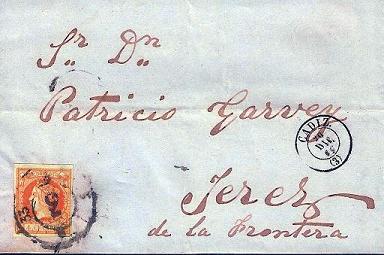 Sr. Dn.
Patricio Garvey
CADIZ
DIC
(3)
Jerez
de la Frontera
5